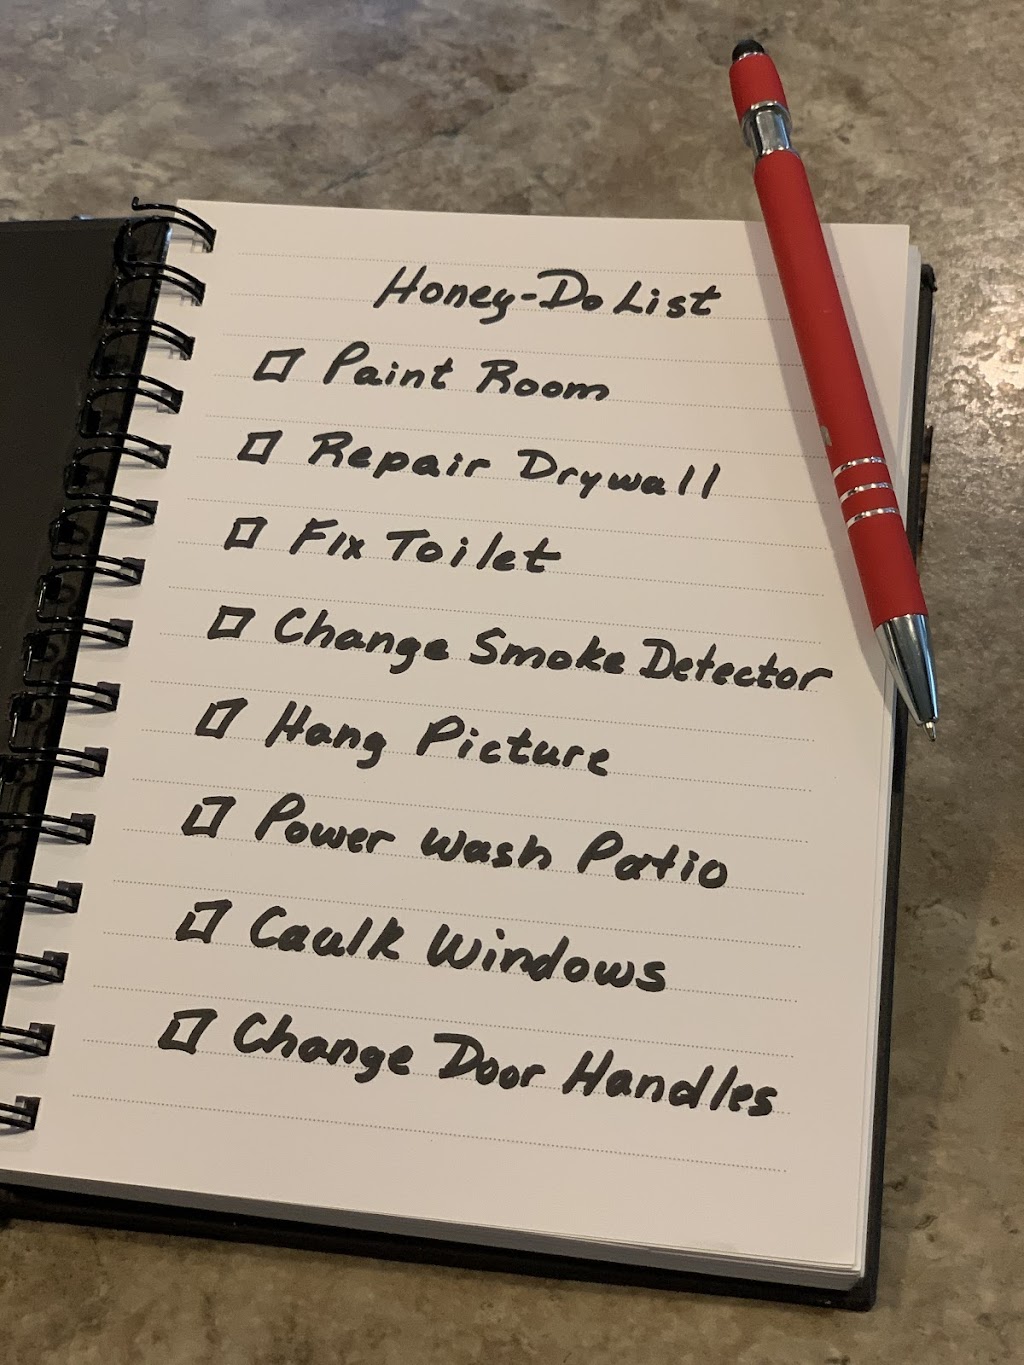 Honey-Do List
☐ Paint Room
☐ Repair Drywall
☐ Fix Toilet
☐ Change Smoke Detector
☐ Hang Picture
☐ Power Wash Patio
☐ Caulk Windows
☐ Change Door Handles